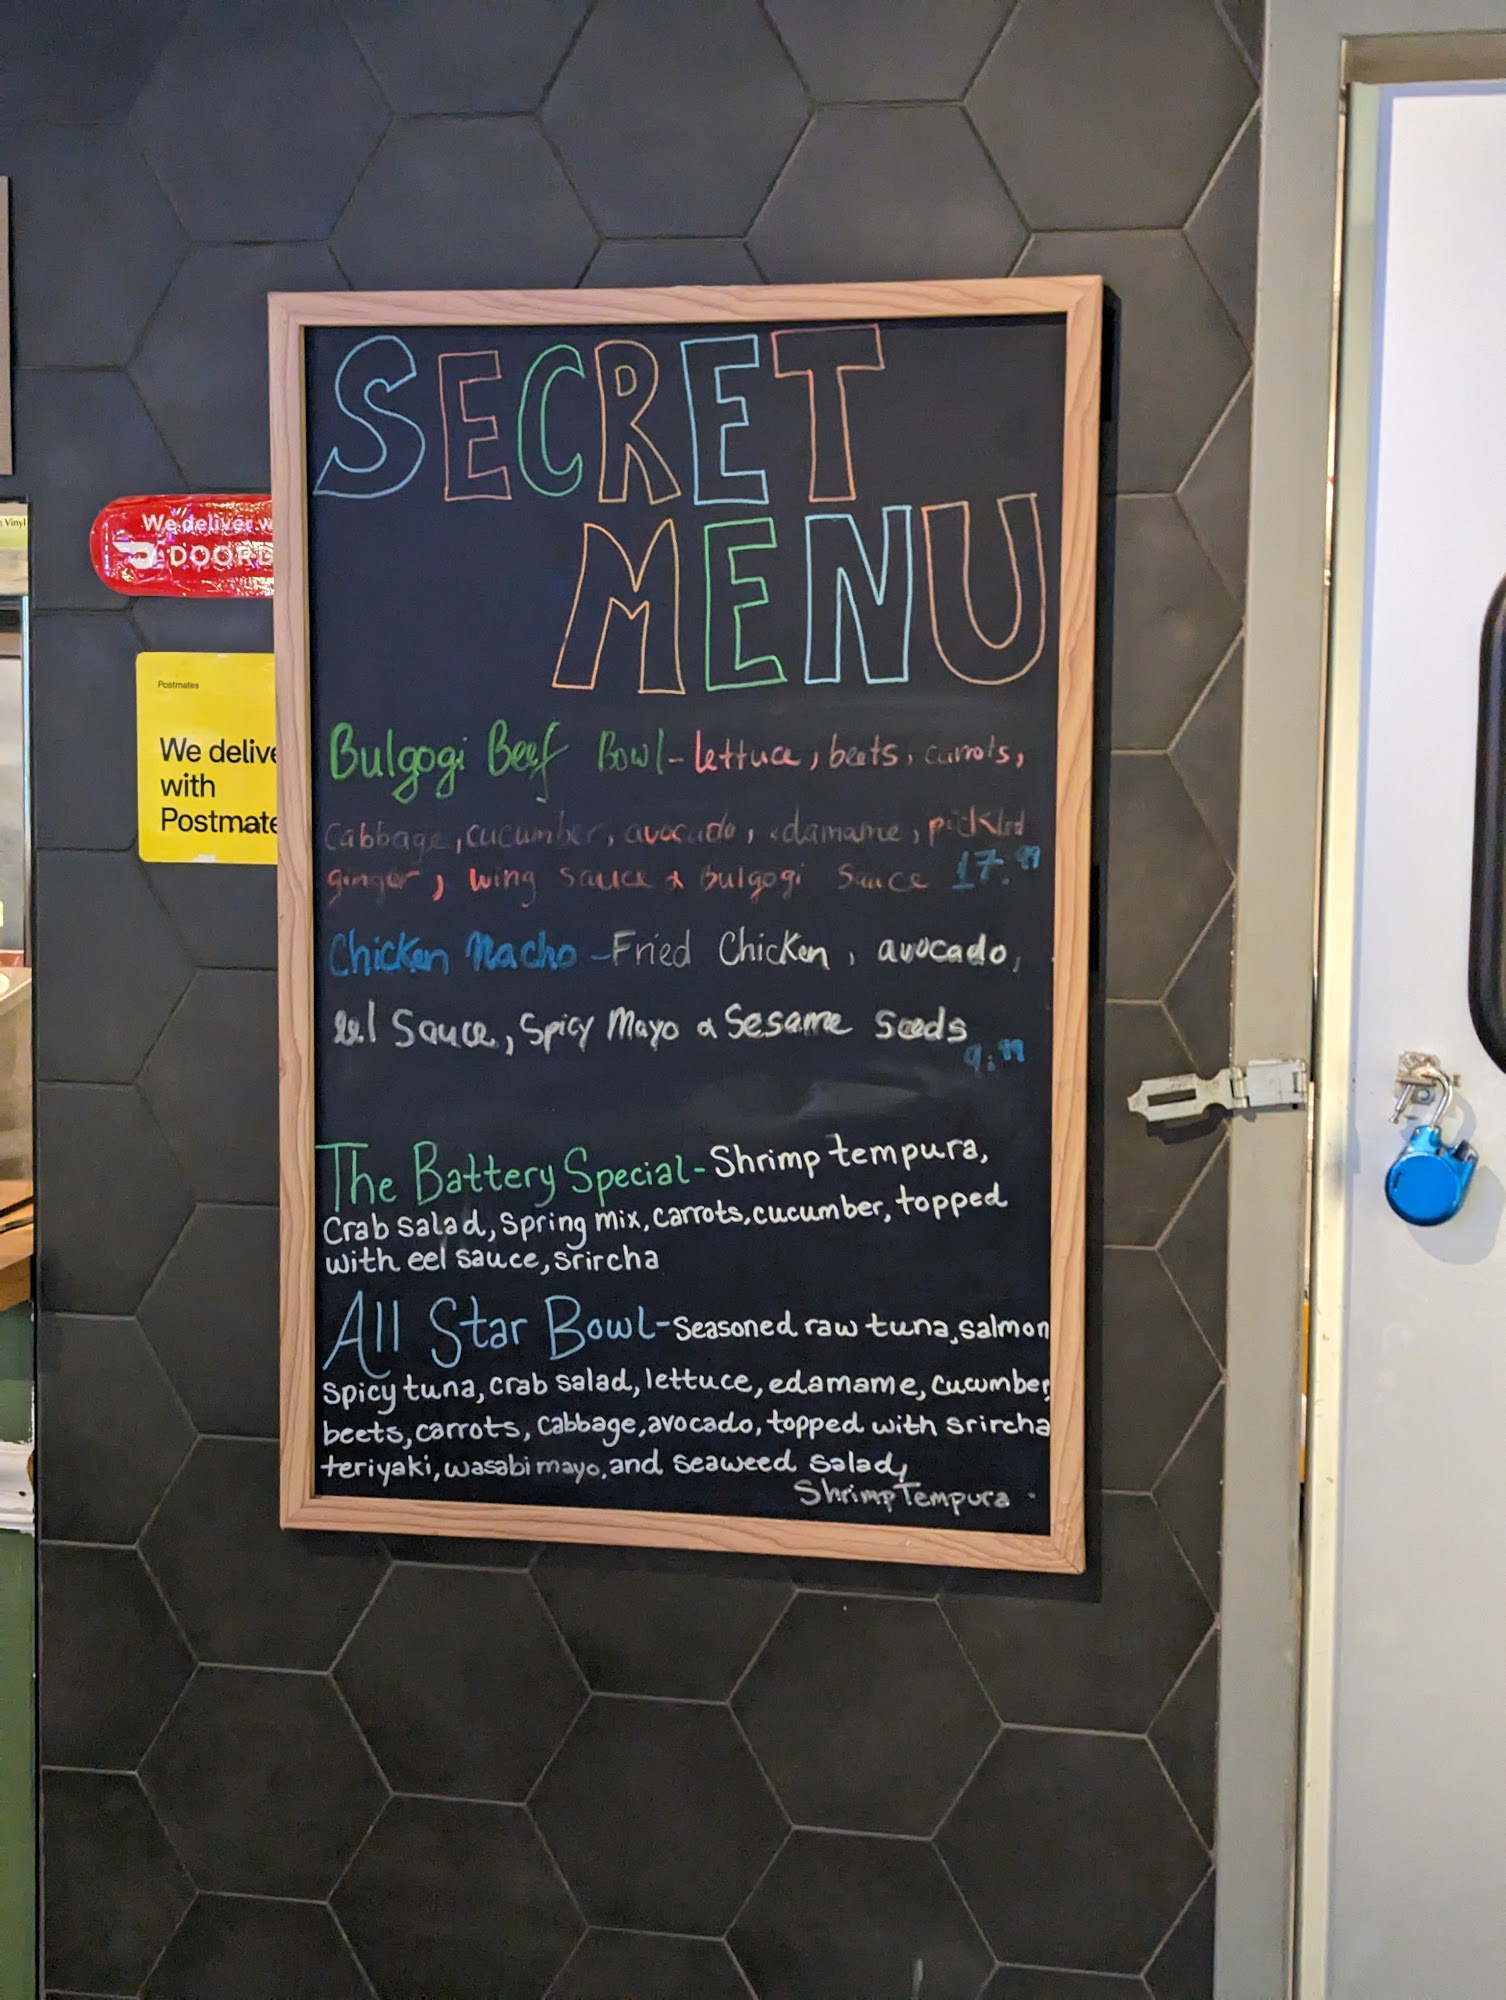 SECRET
MENU
Bulgogi Beef Bowl - lettuce, beets, carrots,
Cabbage, cucumber, avocado, edamame, pickled
ginger, wing sauce & Bulgogi Sauce 17.99
Chicken Nacho - Fried Chicken, avocado,
eel Sauce, Spicy Mayo & Sesame Seeds
9.99
The Battery Special - Shrimp tempura,
Crab salad, Spring mix, carrots, cucumber, topped
with eel sauce, srircha
All Star Bowl - Seasoned raw tuna, salmon
Spicy tuna, crab salad, lettuce, edamame, cucumber,
beets, carrots, Cabbage, avocado, topped with srircha
teriyaki, wasabi mayo, and seaweed salad,
Shrimp Tempura
We deliver w
DOORD
Postmates
We delive
with
Postmate
Vinyl